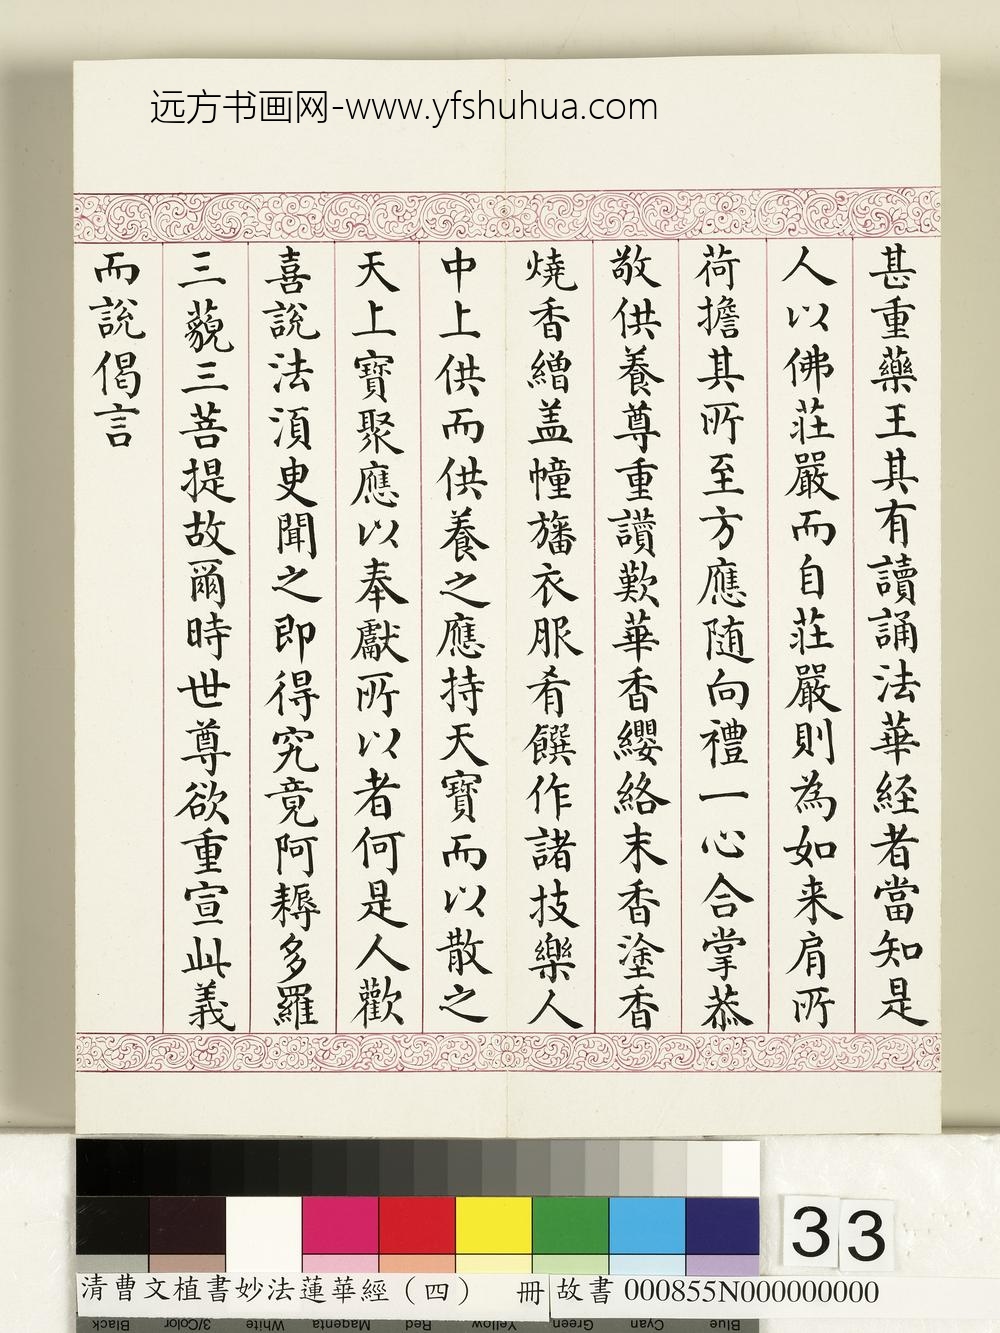 远方书画网-www.yfshuhua.com
甚重藥王其有讀誦法華経者當知是
人以佛莊嚴而自莊嚴則為如来肩所
荷擔其所至方應随向禮一心合掌恭
敬供養尊重讃歎華香纓絡末香塗香
燒香繒盖幢旛衣服肴饌作諸技樂人
中上供而供養之應持天寶而以散之
天上寶聚應以奉獻所以者何是人歡
喜說法湏臾聞之即得究竟阿耨多羅
三藐三菩提故爾時世尊欲重宣此義
而說偈言
33
清曹文植書妙法蓮華經（四） 冊 故書 000855N000000000
Black 3/Color White Magenta Red Yellow Green Cyan Blue